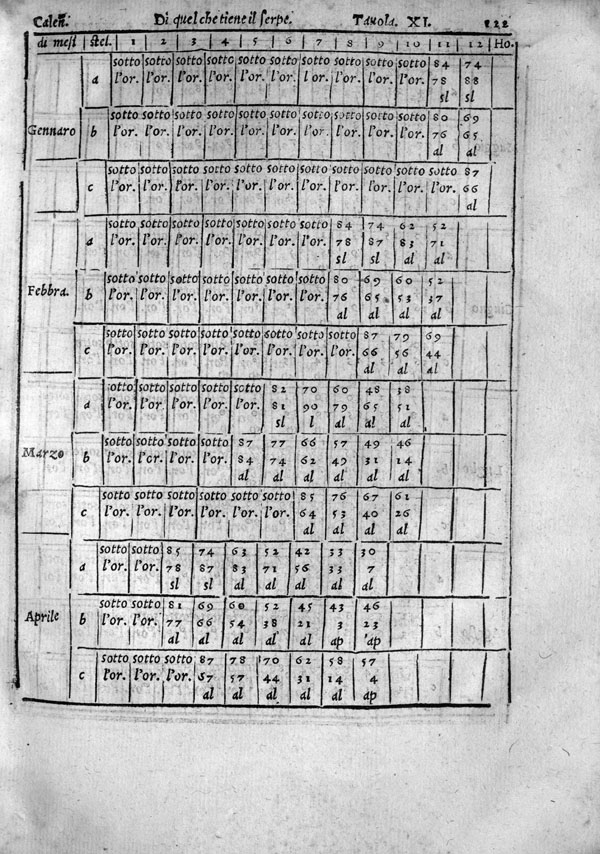 Calen. Di quel che tiene il serpe. Tavola. XI. 122
di mesi stel. 1 2 3 4 5 6 7 8 9 10 11 12 Ho.
sotto sotto sotto sotto sotto sotto sotto sotto sotto sotto 84 74
a l'or. l'or. l'or. l'or. l'or. l'or. l'or. l'or. l'or. l'or. 78 88
sl sl
sotto sotto sotto sotto sotto sotto sotto sotto sotto sotto 80 69
Gennaro b l'or. l'or. l'or. l'or. l'or. l'or. l'or. l'or. l'or. l'or. 76 65
al al
sotto sotto sotto sotto sotto sotto sotto sotto sotto sotto sotto 87
c l'or. l'or. l'or. l'or. l'or. l'or. l'or. l'or. l'or. l'or. l'or. 66
al
sotto sotto sotto sotto sotto sotto sotto 84 74 62 52
a l'or. l'or. l'or. l'or. l'or. l'or. l'or. 78 87 83 71
sl sl al al
sotto sotto sotto sotto sotto sotto sotto 80 69 60 52
Febbra. b l'or. l'or. l'or. l'or. l'or. l'or. l'or. 76 65 53 37
al al al al
sotto sotto sotto sotto sotto sotto sotto sotto 87 79 69
c l'or. l'or. l'or. l'or. l'or. l'or. l'or. l'or. 66 56 44
al al al
sotto sotto sotto sotto sotto 82 70 60 48 38
a l'or. l'or. l'or. l'or. l'or. 81 90 79 65 51
sl l al al al
sotto sotto sotto sotto 87 77 66 57 49 46
Marzo b l'or. l'or. l'or. l'or. 84 74 62 49 31 14
al al al al al al
sotto sotto sotto sotto sotto sotto 85 76 67 61
c l'or. l'or. l'or. l'or. l'or. l'or. 64 53 40 26
al al al al
sotto sotto 85 74 63 52 42 33 30
a l'or. l'or. 78 87 83 71 56 33 7
sl sl al al al al al
sotto sotto 81 69 60 52 45 43 46
Aprile b l'or. l'or. 77 66 54 38 21 3 23
al al al al al ap ap
sotto sotto sotto 87 78 70 62 58 57
c l'or. l'or. l'or. 57 57 44 31 14 4
al al al al al ap